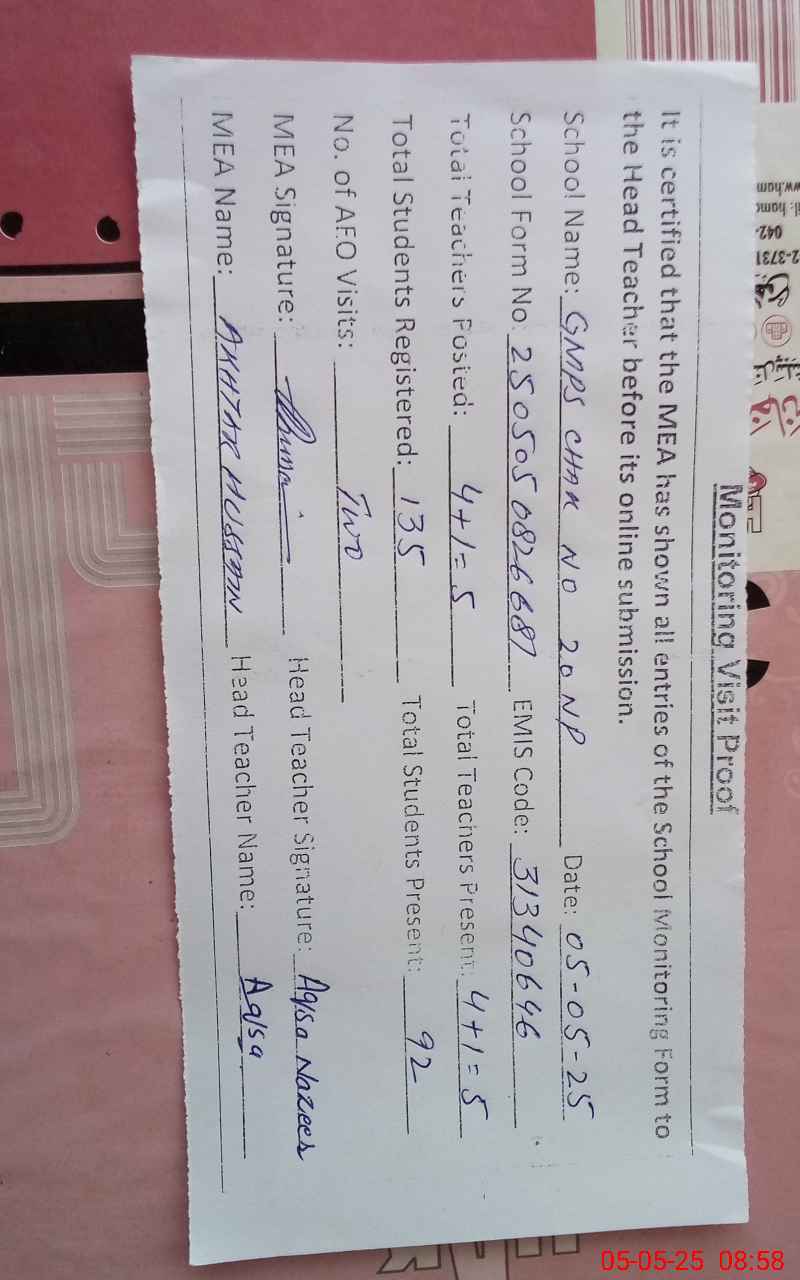 Monitoring Visit Proof
It is certified that the MEA has shown all entries of the School Monitoring Form to
the Head Teacher before its online submission.
School Name: GMPS CHAK NO 20 NP Date: 05-05-25
School Form No: 2505050826687 EMIS Code: 31340646
Total Teachers Posted: 4+1=5 Total Teachers Present: 4+1=5
Total Students Registered: 135 Total Students Present: 92
No. of AEO Visits: Two
MEA Signature: Head Teacher Signature: Aqsa Nazeer
MEA Name: AKHTAR HUSSAIN Head Teacher Name: Aqsa
042-
2-3731
05-05-25 08:58